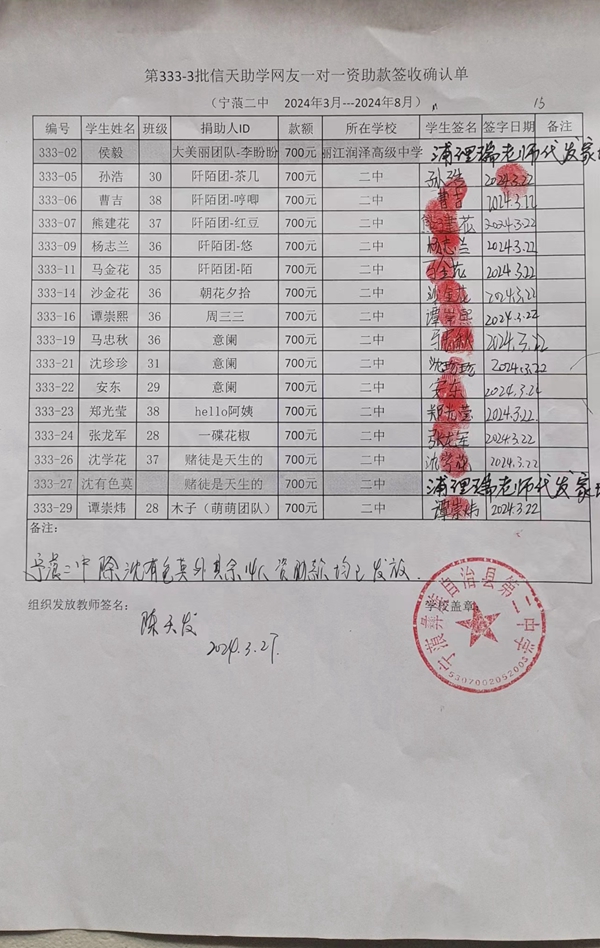 第333-3批信天助学网友一对一资助款签收确认单
(宁蒗二中 2024年3月---2024年8月) 15
编号 学生姓名 班级 捐助人ID 款额 所在学校 学生签名 签字日期 备注
333-02 侯毅 大美丽团队-李盼盼 700元 丽江润泽高级中学 浦理瑞老师代发
333-05 孙浩 30 阡陌团-茶几 700元 二中 孙浩 2024.3.22
333-06 曹吉 38 阡陌团-哼唧 700元 二中 曹吉 2024.3.22
333-07 熊建花 37 阡陌团-红豆 700元 二中 熊建花 2024.3.22
333-09 杨志兰 36 阡陌团-悠 700元 二中 杨志兰 2024.3.22
333-11 马金花 35 阡陌团-陌 700元 二中 马金花 2024.3.22
333-14 沙金花 36 朝花夕拾 700元 二中 沙金花 2024.3.22
333-16 谭崇熙 36 周三三 700元 二中 谭崇熙 2024.3.22
333-19 马忠秋 36 意阑 700元 二中 马忠秋 2024.3.22
333-21 沈珍珍 31 意阑 700元 二中 沈珍珍 2024.3.22
333-22 安东 29 意阑 700元 二中 安东 2024.3.22
333-23 郑光莹 38 hello阿姨 700元 二中 郑光莹 2024.3.22
333-24 张龙军 28 一碟花椒 700元 二中 张龙军 2024.3.22
333-26 沈学花 37 赌徒是天生的 700元 二中 沈学花 2024.3.22
333-27 沈有色莫 赌徒是天生的 700元 二中 浦理瑞老师代发
333-29 谭崇炜 28 木子（萌萌团队） 700元 二中 谭崇炜 2024.3.22
备注:
宁蒗二中除沈有色莫外其余 资助款均已发放.
组织发放教师签名: 学校盖章:
陈天发
2024.3.27.
宁蒗彝族自治县第二中学
5307002052002